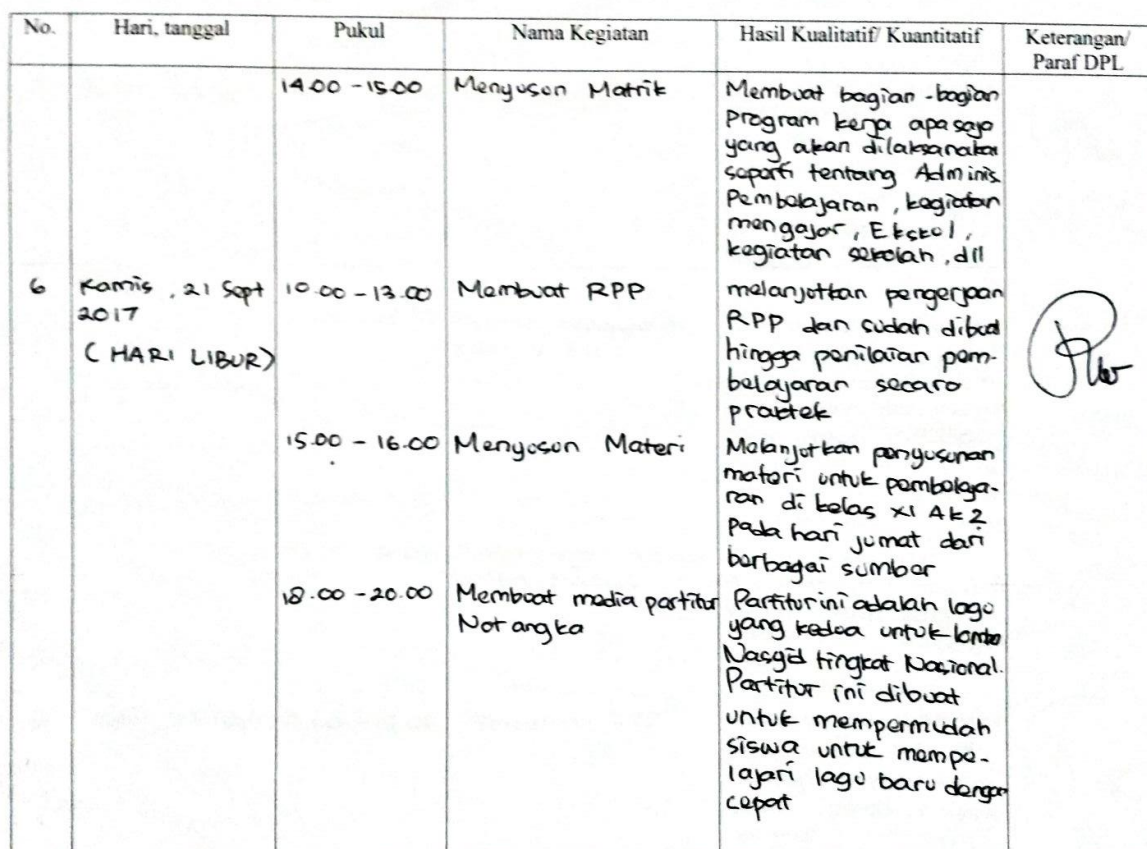 No. Hari, tanggal Pukul Nama Kegiatan Hasil Kualitatif/ Kuantitatif Keterangan/
Paraf DPL
14.00 - 15.00 Menyusun Matrik Membuat bagian - bagian
Program kerja apa saja
yang akan dilaksanakan
seperti tentang Adminis.
Pembelajaran, kegiatan
mengajar, Ekskul,
kegiatan sekolah, dll
6 Kamis, 21 Sept 10.00 - 13.00 Membuat RPP melanjutkan pengerjaan
2017 RPP dan sudah dibuat
(HARI LIBUR) hingga penilaian pem-
belajaran secara
praktek
15.00 - 16.00 Menyusun Materi Melanjutkan penyusunan
materi untuk pembelaja-
ran di kelas XI AK 2
pada hari jumat dari
berbagai sumber
18.00 - 20.00 Membuat media partitur Partitur ini adalah lagu
Not angka yang kedua untuk lomba
Nasyid tingkat Nasional.
Partitur ini dibuat
untuk mempermudah
siswa untuk mempe-
lajari lagu baru dengan
cepat